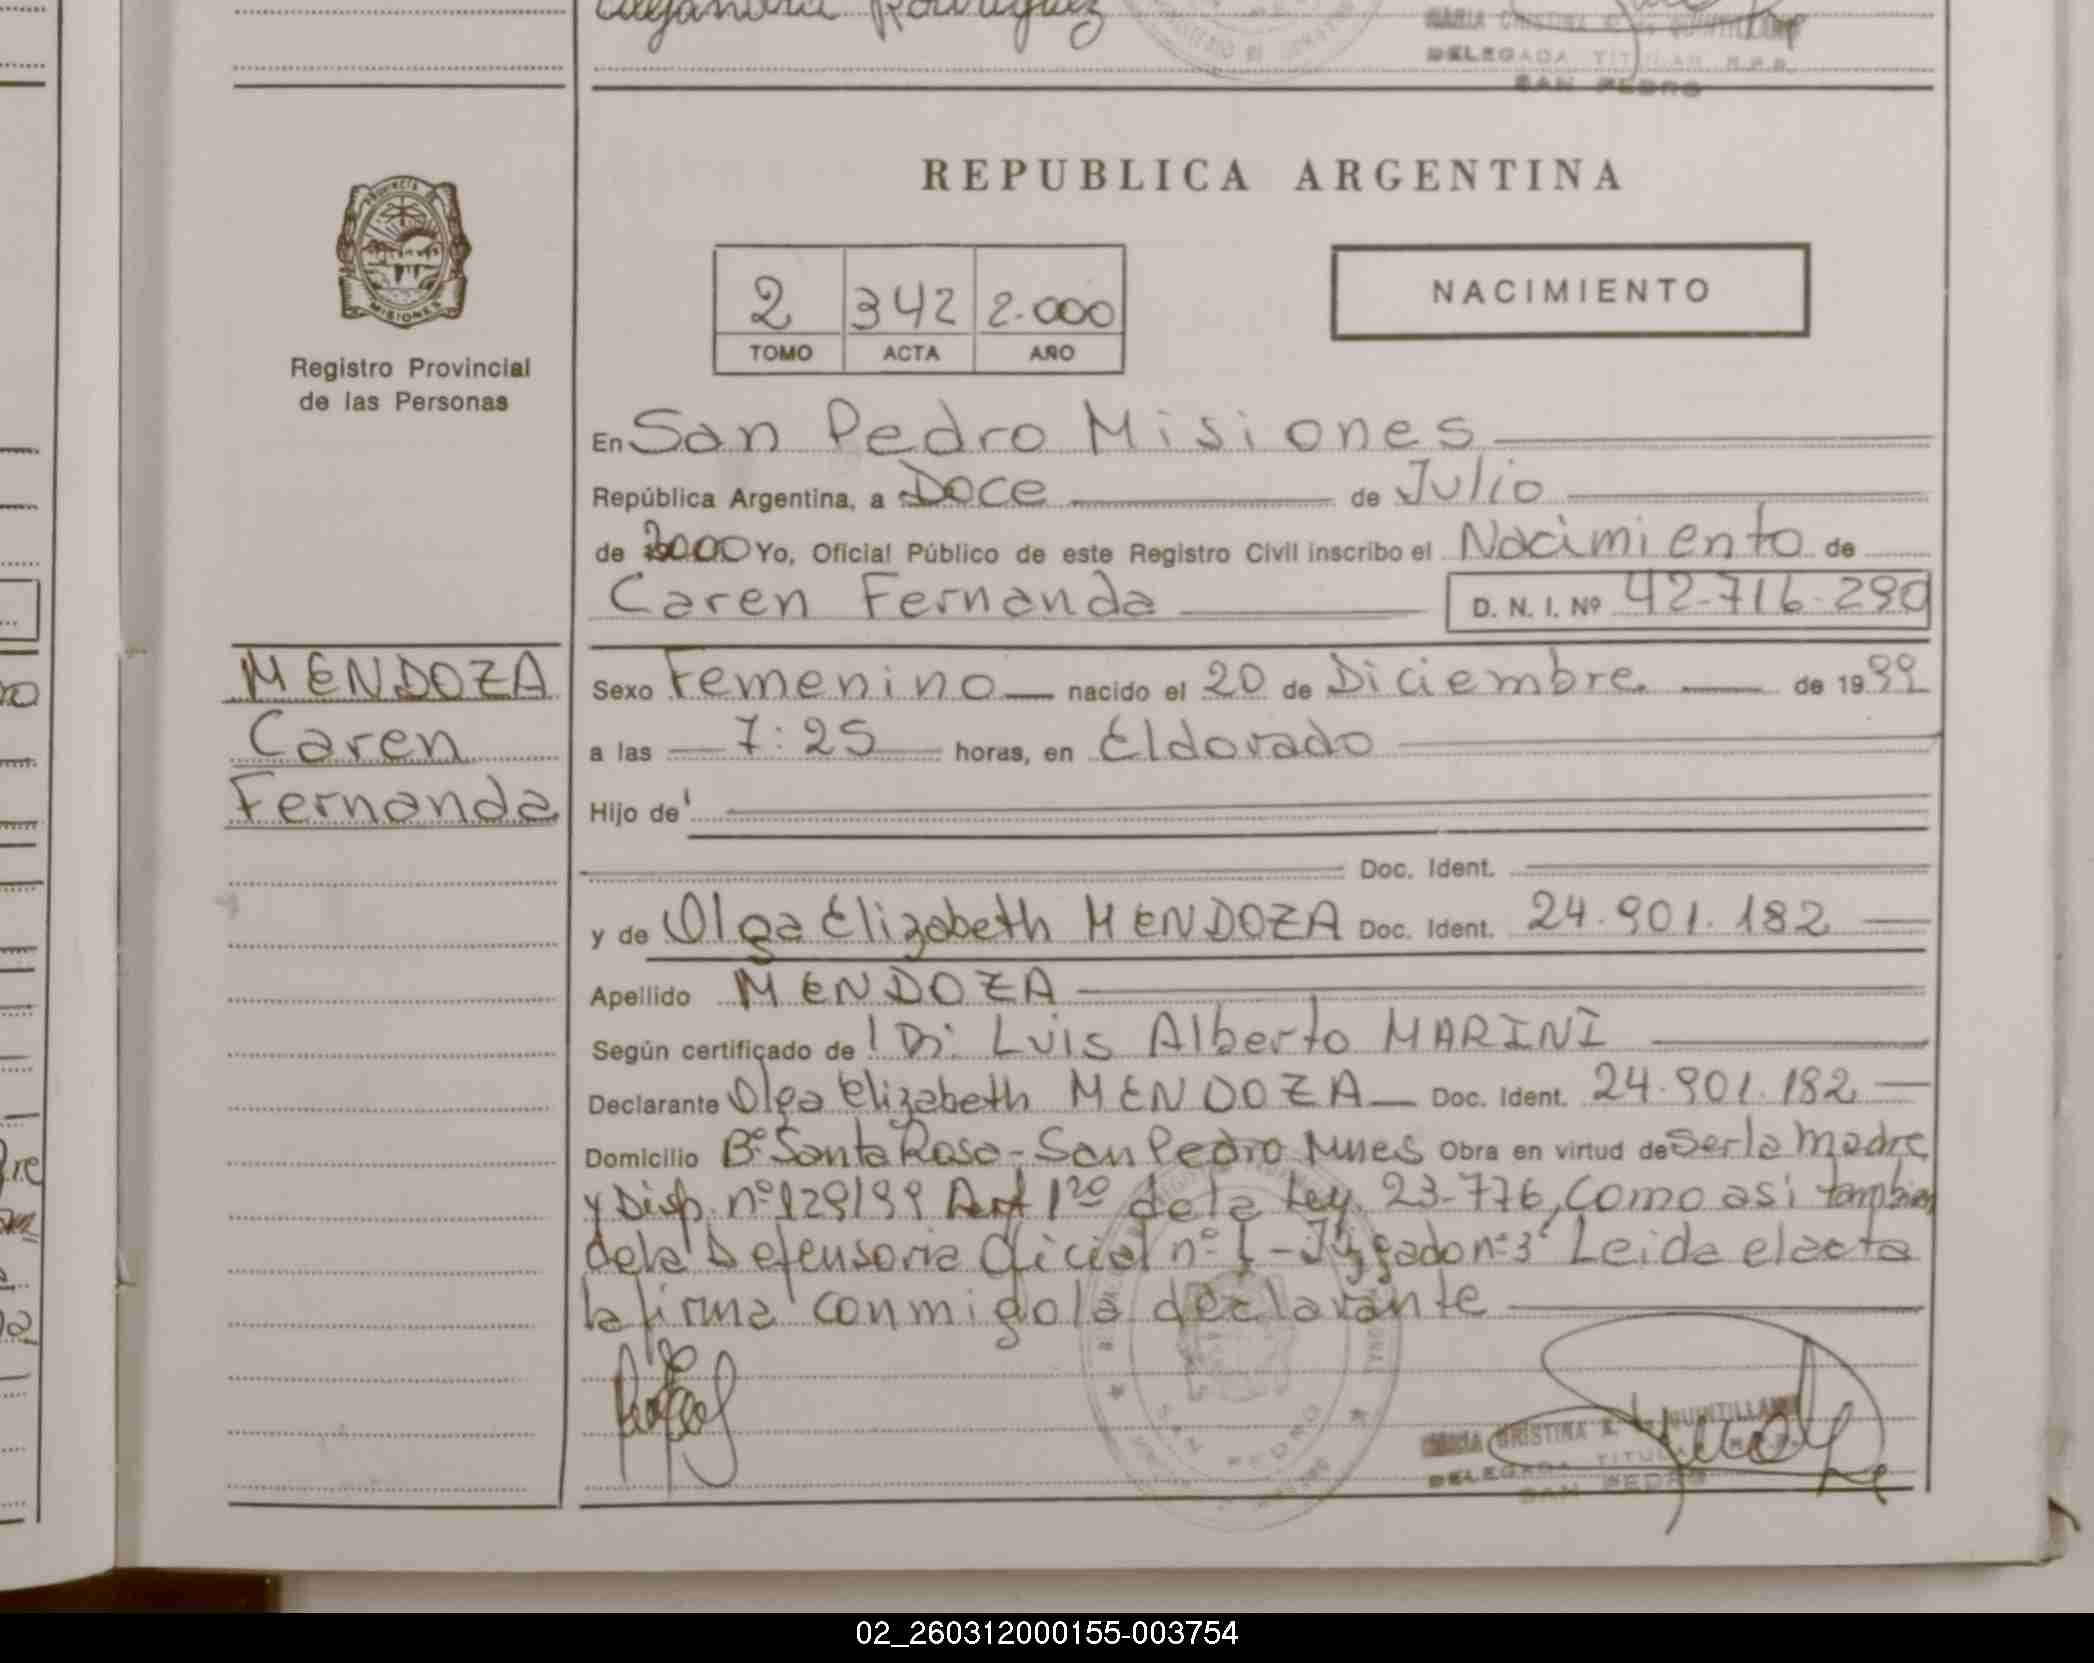 Alejandra Rodriguez
MARIA CRISTINA
DELEGADA TITULAR R.P.P.
SAN PEDRO
REPUBLICA ARGENTINA
PROVINCIA
MISIONES
Registro Provincial
de las Personas
2 342 2.000
TOMO ACTA AÑO
NACIMIENTO
En San Pedro Misiones
República Argentina, a Doce de Julio
de 2000 Yo, Oficial Público de este Registro Civil inscribo el Nacimiento de
Caren Fernanda D. N. I. Nº 42-716-290
MENDOZA
Caren
Fernanda
Sexo Femenino nacido el 20 de Diciembre. de 1999
a las 7:25 horas, en Eldorado
Hijo de
Doc. Ident.
y de Olga Elizabeth MENDOZA Doc. Ident. 24.901.182
Apellido MENDOZA
Según certificado de Dr. Luis Alberto MARINI
Declarante Olga Elizabeth MENDOZA Doc. Ident. 24.901.182
Domicilio Bº Santa Rosa - San Pedro Mnes Obra en virtud de ser la madre
y Disp. nº 129/99 Art 1º de la Ley. 23-776, Como asi tambien
de la Defensoria Oficial nº 1 - Juzgado nº 3 Leida el acta
la firma conmigo la declarante
SAN PEDRO
MARIA CRISTINA QUINTILLAN
DELEGADA TITULAR R.P.P.
SAN PEDRO
02_260312000155-003754